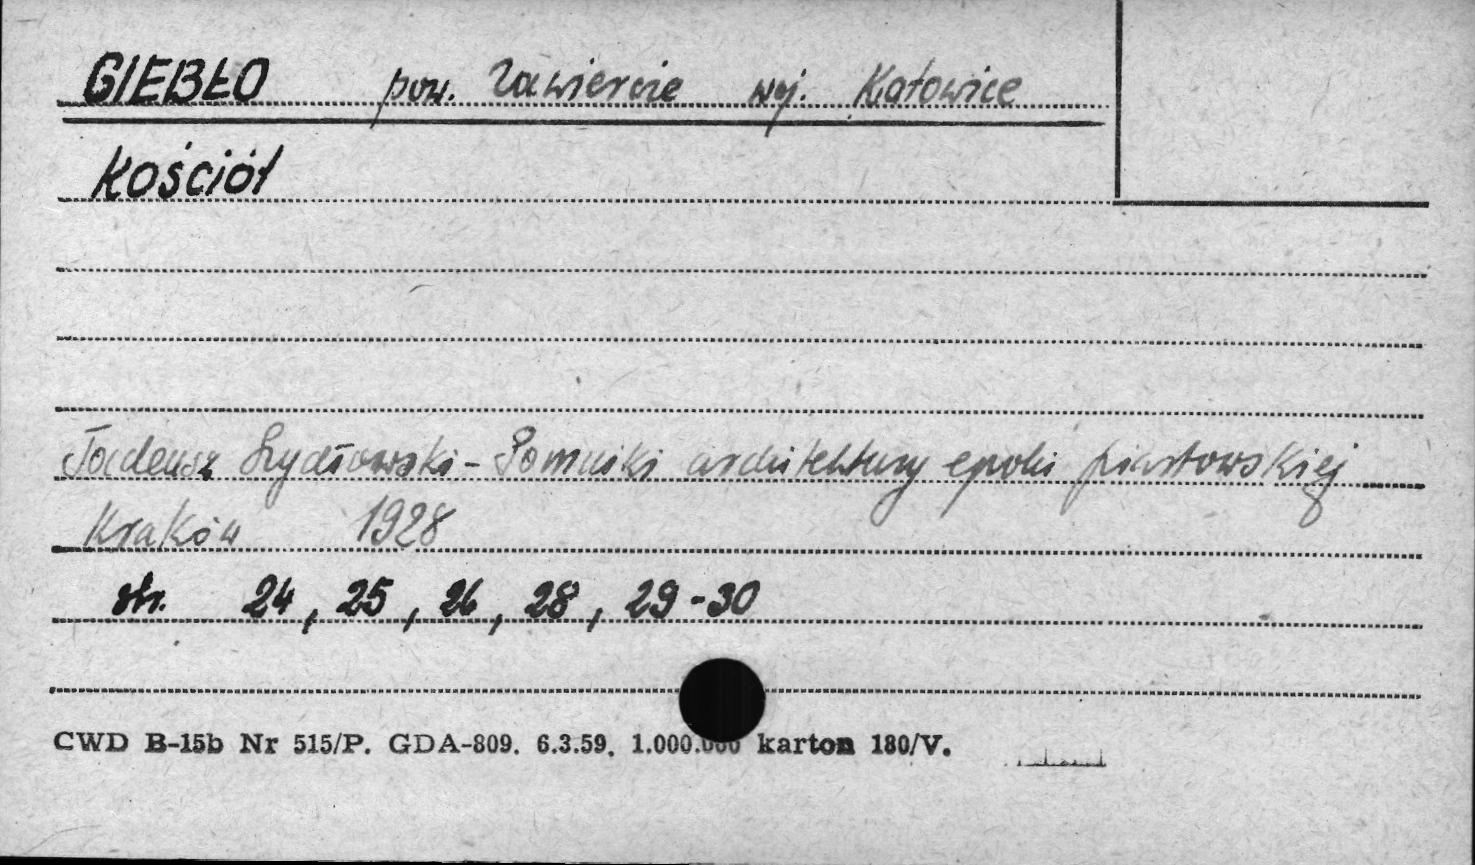 GIEBŁO pow. Zawiercie woj. Katowice
Kościół
Tadeusz Szydłowski - Pomniki architektury epoki piastowskiej
Kraków 1928
str. 24, 25, 26, 28, 29-30
CWD B-15b Nr 515/P. GDA-809. 6.3.59. 1.000.000 karton 180/V.